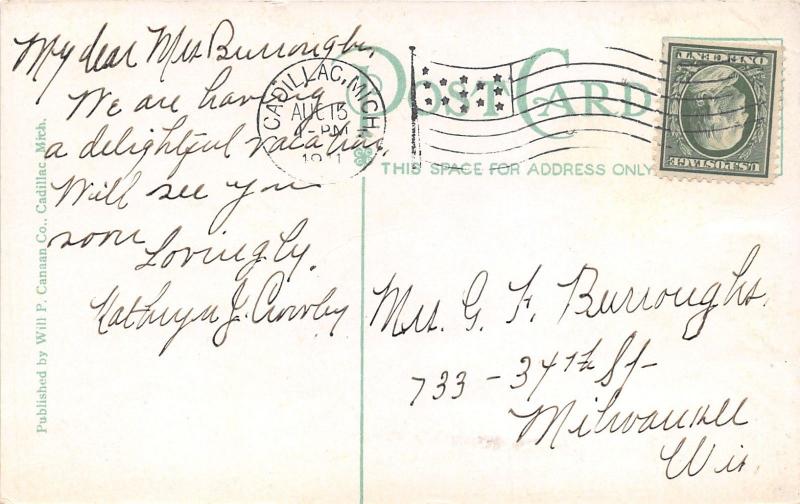 My dear Mrs Burroughs,
We are having
a delightful vacation.
Will see you
soon
Lovingly.
Kathryn J. Crowley
Published by Will P. Canaan Co., Cadillac, Mich.
CADILLAC, MICH.
AUG 15
-PM
1911
POST CARD
THIS SPACE FOR ADDRESS ONLY
U.S. POSTAGE
ONE CENT
Mrs. G. F. Burroughs.
733 - 34th St-
Milwaukee
Wis.